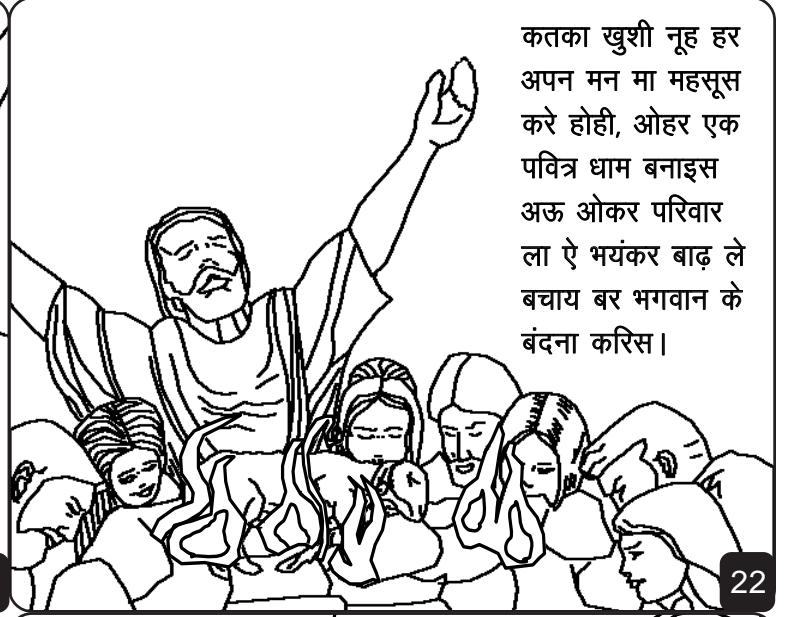 कतका खुशी नूह हर
अपन मन मा महसूस
करे होही, ओहर एक
पवित्र धाम बनाइस
अऊ ओकर परिवार
ला ऐ भयंकर बाढ़ ले
बचाय बर भगवान के
बंदना करिस।
22